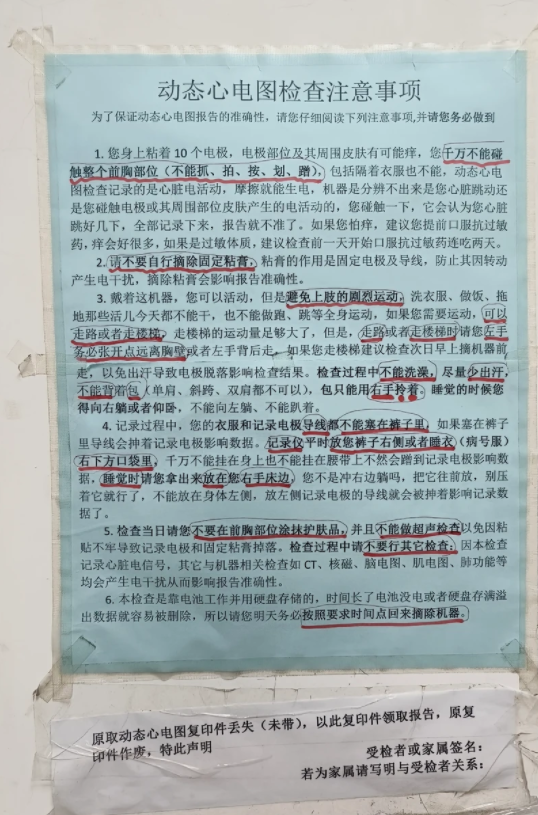 动态心电图检查注意事项
为了保证动态心电图报告的准确性，请您仔细阅读下列注意事项,并请您务必做到
1. 您身上粘着10个电极，电极部位及其周围皮肤有可能痒，您千万不能碰
触整个前胸部位（不能抓、拍、按、划、蹭），包括隔着衣服也不能，动态心电
图检查记录的是心脏电活动，摩擦就能生电，机器是分辨不出来是您心脏跳动还
是您碰触电极或其周围部位皮肤产生的电活动的，您碰触一下，它会认为您心脏
跳好几下，全部记录下来，报告就不准了。如果您怕痒，建议您提前口服抗过敏
药，痒会好很多，如果是过敏体质，建议检查前一天开始口服抗过敏药连吃两天。
2. 请不要自行摘除固定粘膏，粘膏的作用是固定电极及导线，防止其因转动
产生电干扰，摘除粘膏会影响报告准确性。
3. 戴着这机器，您可以活动，但是避免上肢的剧烈运动，洗衣服、做饭、拖
地那些活儿今天都不能干，也不能做跑、跳等全身运动，如果您需要运动，可以
走路或者走楼梯，走楼梯的运动量足够大了，但是，走路或者走楼梯时请您左手
务必张开点远离胸壁或者左手背后走，如果您走楼梯建议检查次日早上摘机器前
走，以免出汗导致电极脱落影响检查结果。检查过程中不能洗澡，尽量少出汗，
不能背着包（单肩、斜跨、双肩都不可以），包只能用右手拎着。睡觉的时候您
得向右躺或者仰卧，不能向左躺、不能趴着。
4. 记录过程中，您的衣服和记录电极导线都不能塞在裤子里，如果塞在裤子
里导线会抻着记录电极影响数据。记录仪平时放您裤子右侧或者睡衣（病号服）
右下方口袋里，千万不能挂在身上也不能挂在腰带上不然会蹭到记录电极影响数
据，睡觉时请您拿出来放在您右手床边，您不是冲右边躺吗，把它往前放，别压
着它就行了，不能放在身体左侧，放左侧记录电极的导线就会被抻着影响记录数
据了。
5. 检查当日请您不要在前胸部位涂抹护肤品，并且不能做超声检查以免因粘
贴不牢导致记录电极和固定粘膏掉落。检查过程中请不要行其它检查，因本检查
记录心脏电信号，其它与机器相关检查如CT、核磁、脑电图、肌电图、肺功能等
均会产生电干扰从而影响报告准确性。
6. 本检查是靠电池工作并用硬盘存储的，时间长了电池没电或者硬盘存满溢
出数据就容易被删除，所以请您明天务必按照要求时间点回来摘除机器。
原取动态心电图复印件丢失（未带），以此复印件领取报告，原复
印件作废，特此声明
受检者或家属签名：
若为家属请写明与受检者关系：